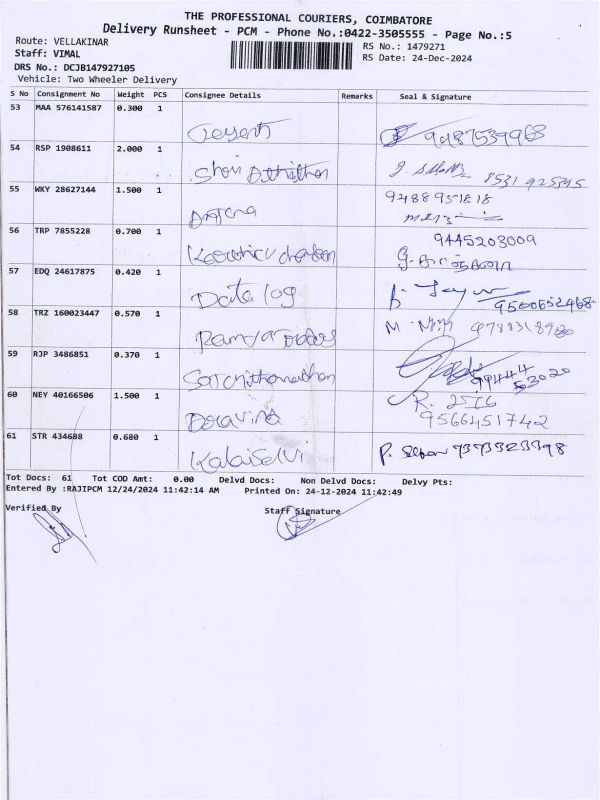 THE PROFESSIONAL COURIERS, COIMBATORE
Delivery Runsheet - PCM - Phone No.:0422-3505555 - Page No.:5
Route: VELLAKINAR
RS No.: 1479271
Staff: VIMAL
RS Date: 24-Dec-2024
DRS No.: DCJB147927105
Vehicle: Two Wheeler Delivery
S No Consignment No Weight PCS Consignee Details Remarks Seal & Signature
53 MAA 576141587 0.300 1
9487539968
54 RSP 1908611 2.000 1
8531 925395
55 WKY 28627144 1.500 1
9488951818
56 TRP 7855228 0.700 1
9445203009
57 EDQ 24617875 0.420 1
Data log
9500652468
58 TRZ 160023447 0.570 1
59 RJP 3486851 0.370 1
99444
53020
60 NEY 40166506 1.500 1
9566451742
61 STR 434688 0.680 1
Kalaiselvi 7373323398
Tot Docs: 61 Tot COD Amt: 0.00 Delvd Docs: Non Delvd Docs: Delvy Pts:
Entered By :RAJIPCM 12/24/2024 11:42:14 AM Printed On: 24-12-2024 11:42:49
Verified By Staff Signature